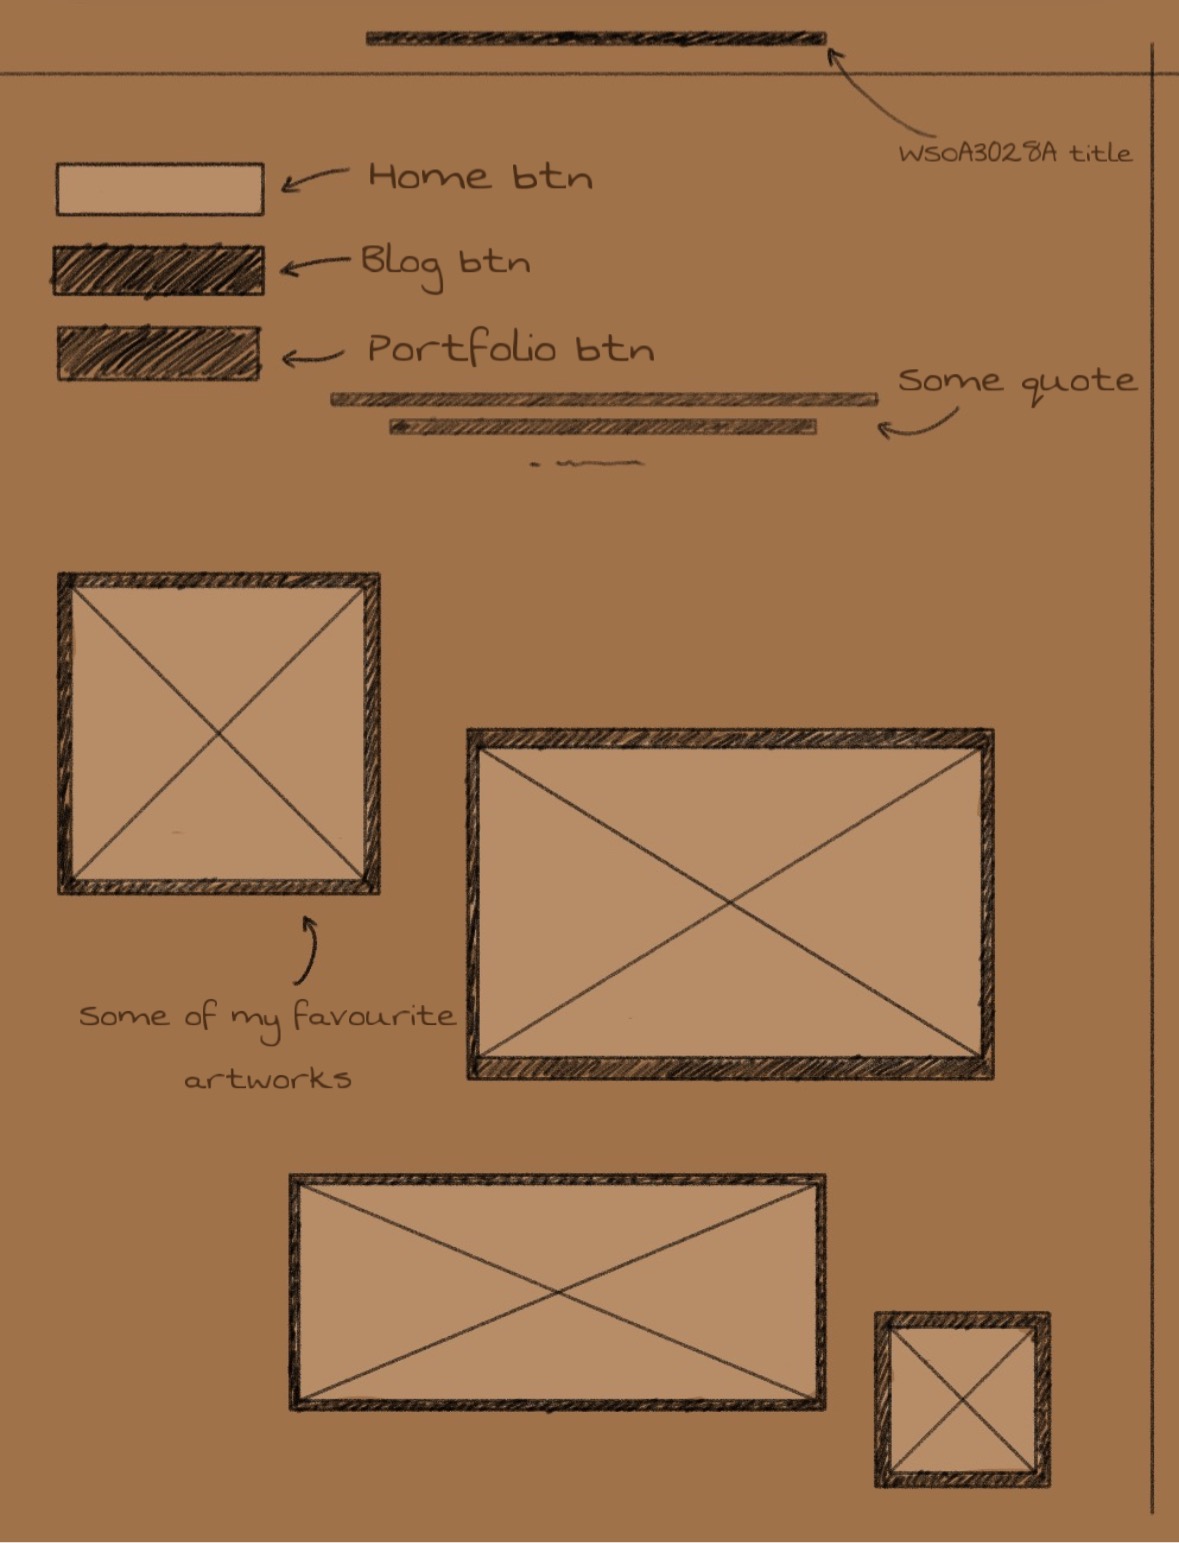 WSOA3028A title
Home btn
Blog btn
Portfolio btn
Some quote
Some of my favourite
artworks